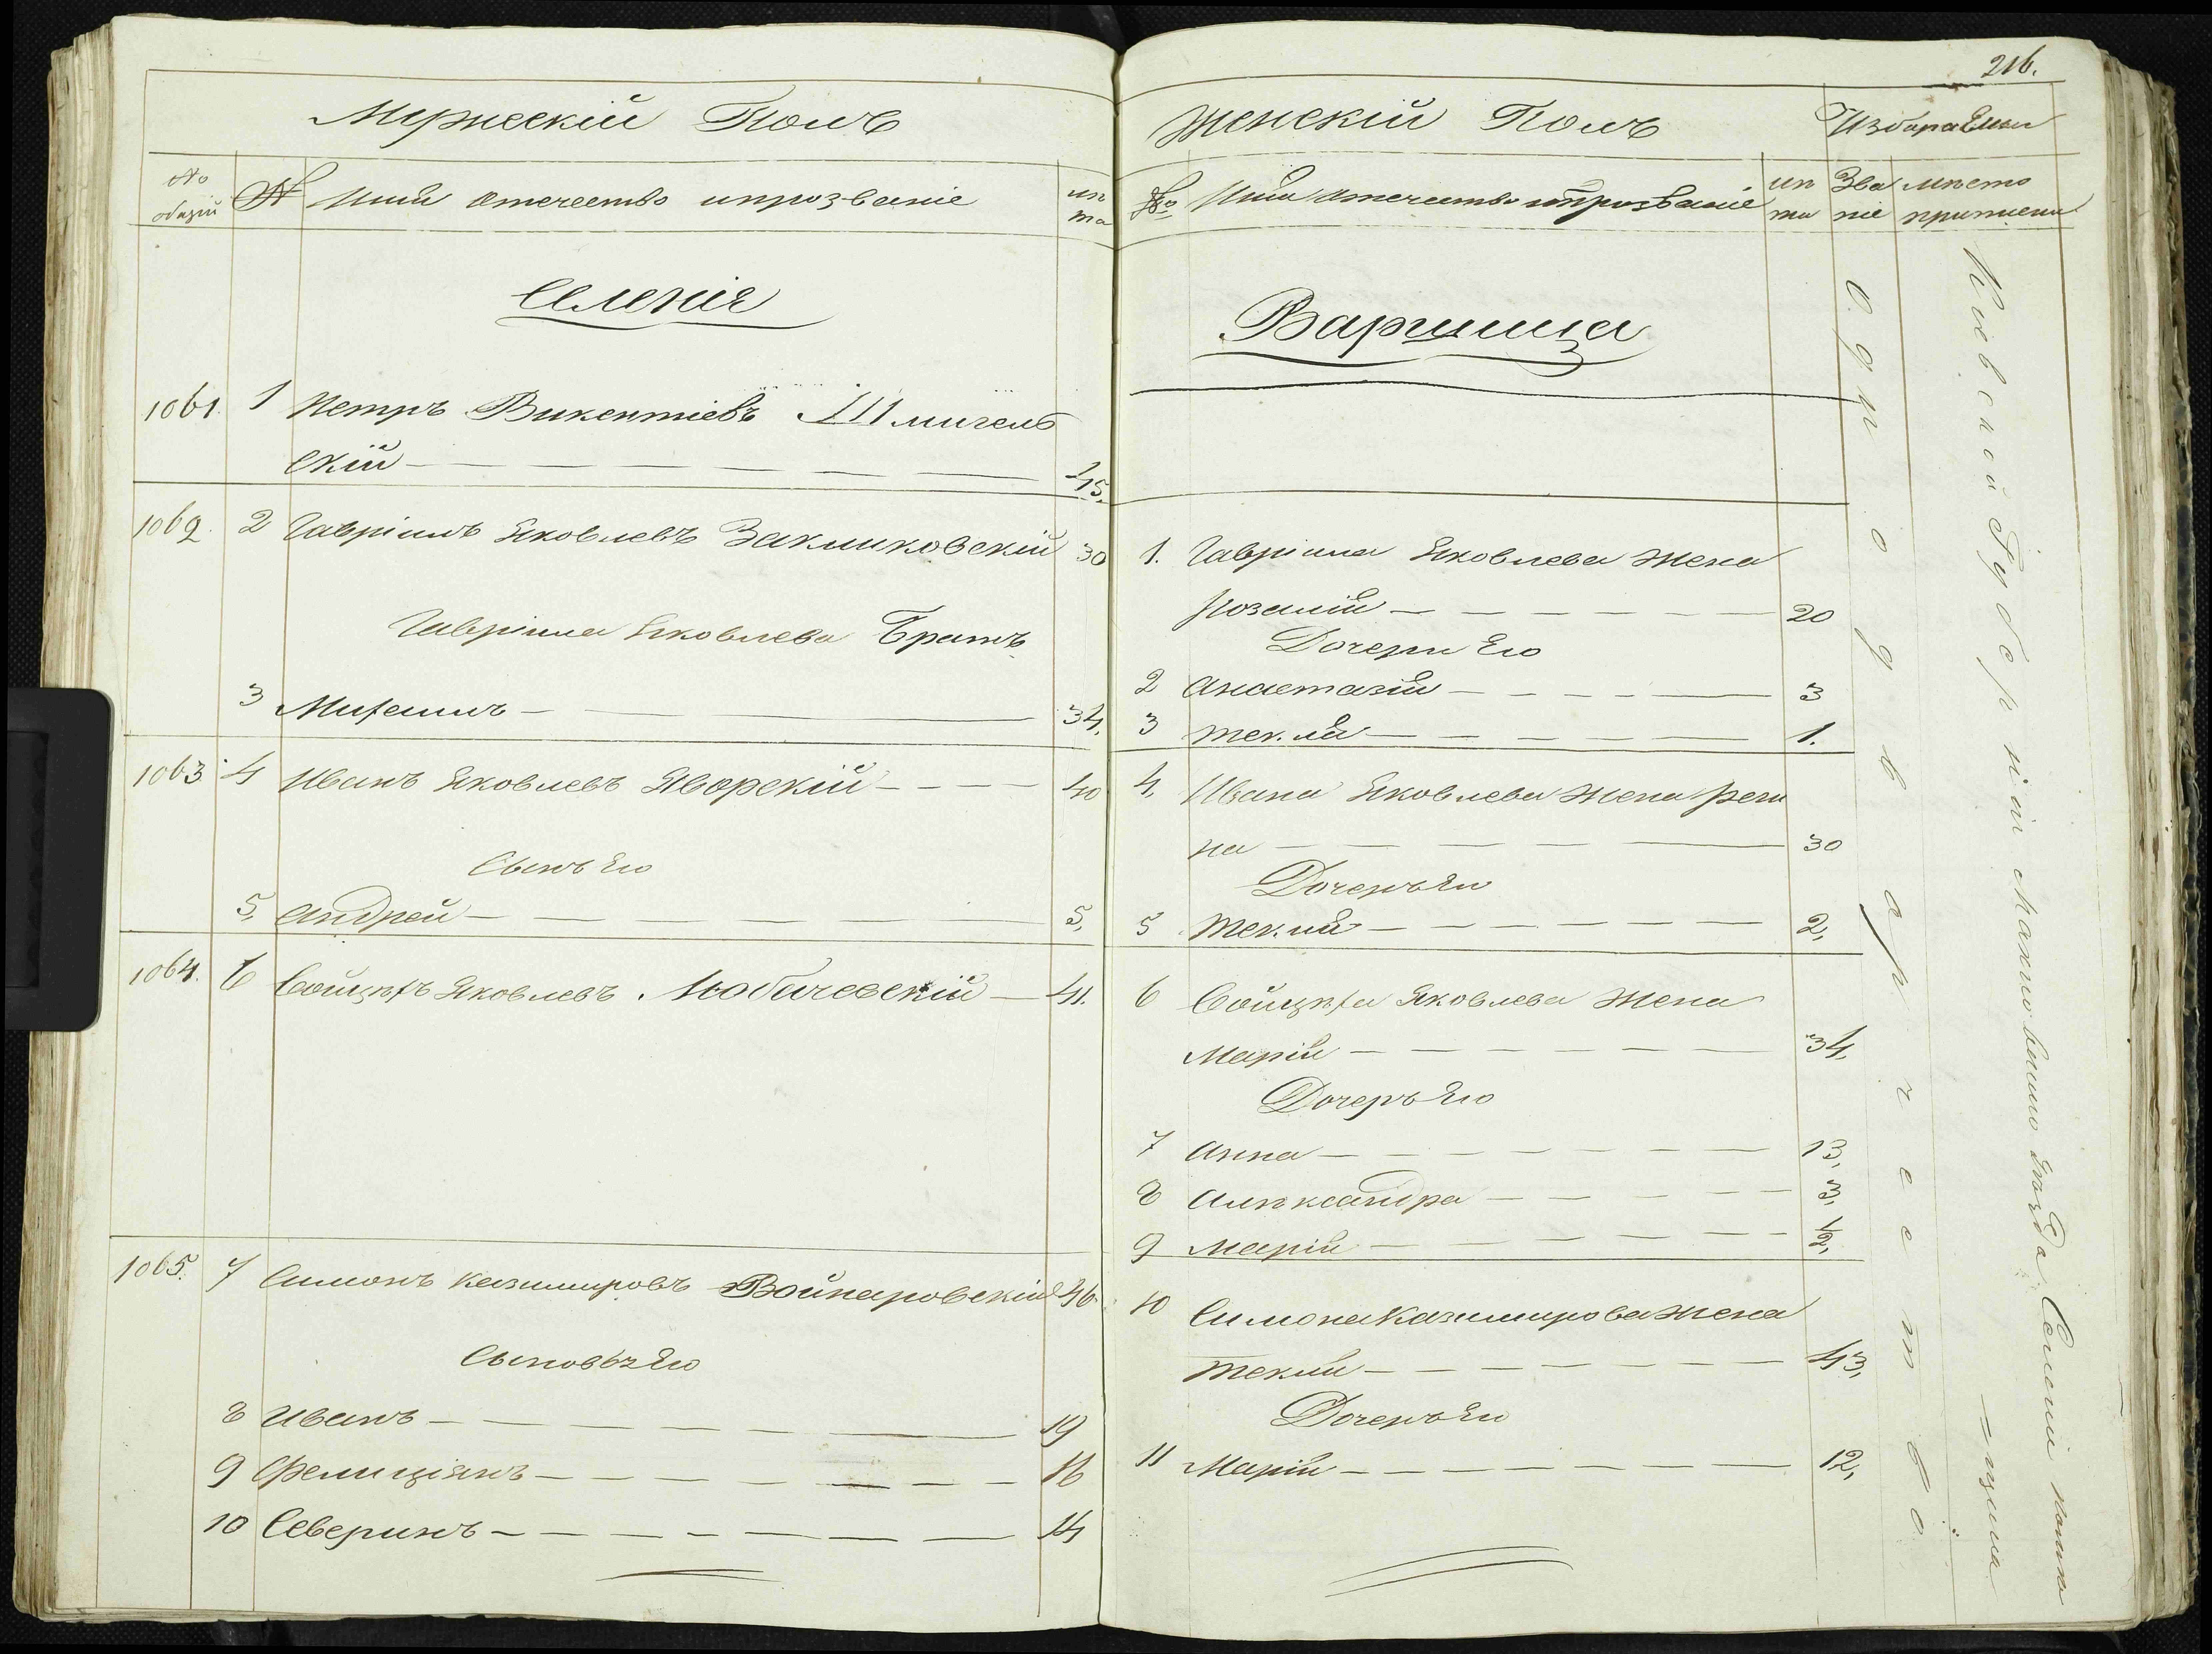 Мужескій Полъ
№ общій № Имя отечество ипрозваніе лѣта
Селенія
1061. 1 Петръ Викентіевъ Шмигель
скій 45.
1062. 2 Гавріилъ Яковлевъ Закликовскій 30
Гавріила Яковлева Братъ
3 Михаилъ 34,
1063. 4 Иванъ Яковлевъ Яворскій 40
Сынъ Его
5, Андрей 5,
1064. 6 Войцѣхъ Яковлевъ Любачевскій 41.
1065. 7 Симонъ Казимировъ Войнаровскій 46.
Сыновья Его
8 Иванъ 19
9 Фелиціянъ 16
10 Северинъ 14
216.
Женскій Полъ
№ Имя отечество ипрозваніе лѣта Званіе мѣсто приписки
Варшица
1. Гавріила Яковлева жена
Розалія 20
Дочери Его
2 Анастазія 3
3 Текля 1.
4, Ивана Яковлева жена Реги
на 30
Дочерь Его
5 Текля 2,
6 Войцѣха Яковлева жена
Марія 34,
Дочерь Его
7 Анна 13,
8 Алѣксандра 3,
9 Марія 1/2,
10 Симона Казимирова жена
Текля 43,
Дочерь Его
11 Марія 12,
Однодворчество
Кіевской Губерніи Махновскаго уѣзда Селеніи